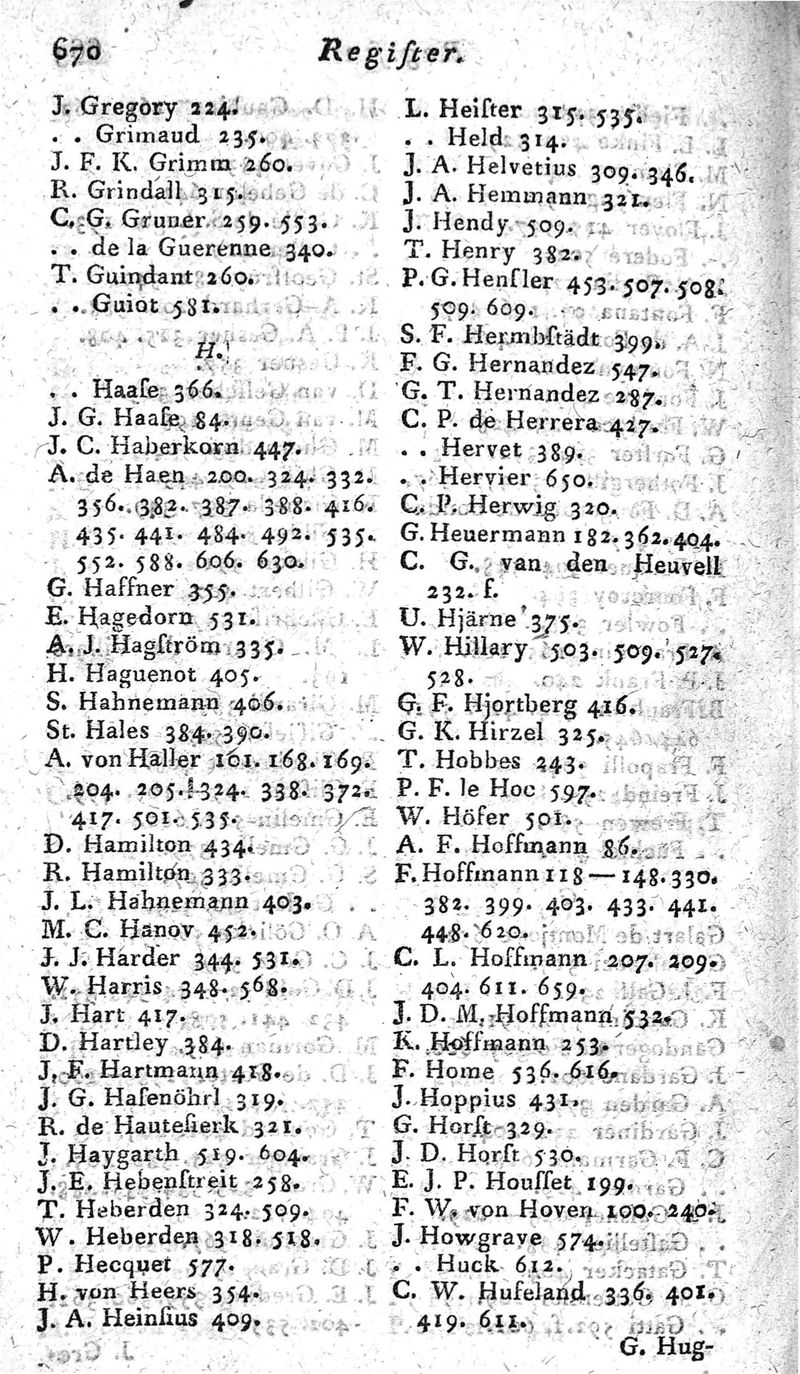 670 Regiſter.
J. Gregory 224.
. . Grimaud 235.
J. F. K. Grimm 260.
R. Grindall 315.
C. G. Gruner 259. 553.
. . de la Guerenne 340.
T. Guindant 260.
. . Guiot 581.
H.
. . Haaſe 366.
J. G. Haaſe 84.
J. C. Haberkorn 447.
A. de Haen 200. 324. 332.
356. 382. 387. 388. 416.
435. 441. 484. 492. 535.
552. 588. 606. 630.
G. Haffner 355.
E. Hagedorn 531.
A. J. Hagſtröm 335.
H. Haguenot 405.
S. Hahnemann 406.
St. Hales 384. 390.
A. von Haller 161. 168. 169.
204. 205. 324. 338. 372.
417. 501. 535.
D. Hamilton 434.
R. Hamilton 333.
J. L. Hahnemann 403.
M. C. Hanov 452.
J. J. Harder 344. 531.
W. Harris 348. 568.
J. Hart 417.
D. Hartley 384.
J. F. Hartmann 418.
J. G. Haſenöhrl 319.
R. de Hauteſierk 321.
J. Haygarth 519. 604.
J. E. Hebenſtreit 258.
T. Heberden 324. 509.
W. Heberden 318. 518.
P. Hecquet 577.
H. von Heers 354.
J. A. Heinſius 409.
L. Heiſter 315. 535.
. . Held 314.
J. A. Helvetius 309. 346.
J. A. Hemmann 321.
J. Hendy 509.
T. Henry 382.
P. G. Henſler 453. 507. 508.
509. 609.
S. F. Hermbſtädt 399.
F. G. Hernandez 547.
G. T. Hernandez 287.
C. P. de Herrera 427.
. . Hervet 389.
. . Hervier 650.
C. P. Herwig 320.
G. Heuermann 182. 362. 404.
C. G. van den Heuvell
232. f.
U. Hjärne 375.
W. Hillary 503. 509. 527.
528.
G. F. Hjortberg 416.
G. K. Hirzel 325.
T. Hobbes 243.
P. F. le Hoc 597.
W. Höfer 501.
A. F. Hoffmann 86.
F. Hoffmann 118 — 148. 330.
382. 399. 403. 433. 441.
448. 620.
C. L. Hoffmann 207. 209.
404. 611. 659.
J. D. M. Hoffmann 532.
K. Hoffmann 253.
F. Home 536. 616.
J. Hoppius 431.
G. Horſt 329.
J. D. Horſt 530.
E. J. P. Houſſet 199.
F. W. von Hoven 100. 240.
J. Howgrave 574.
. . Huck 612.
C. W. Hufeland 336. 401.
419. 611.
G. Hug-